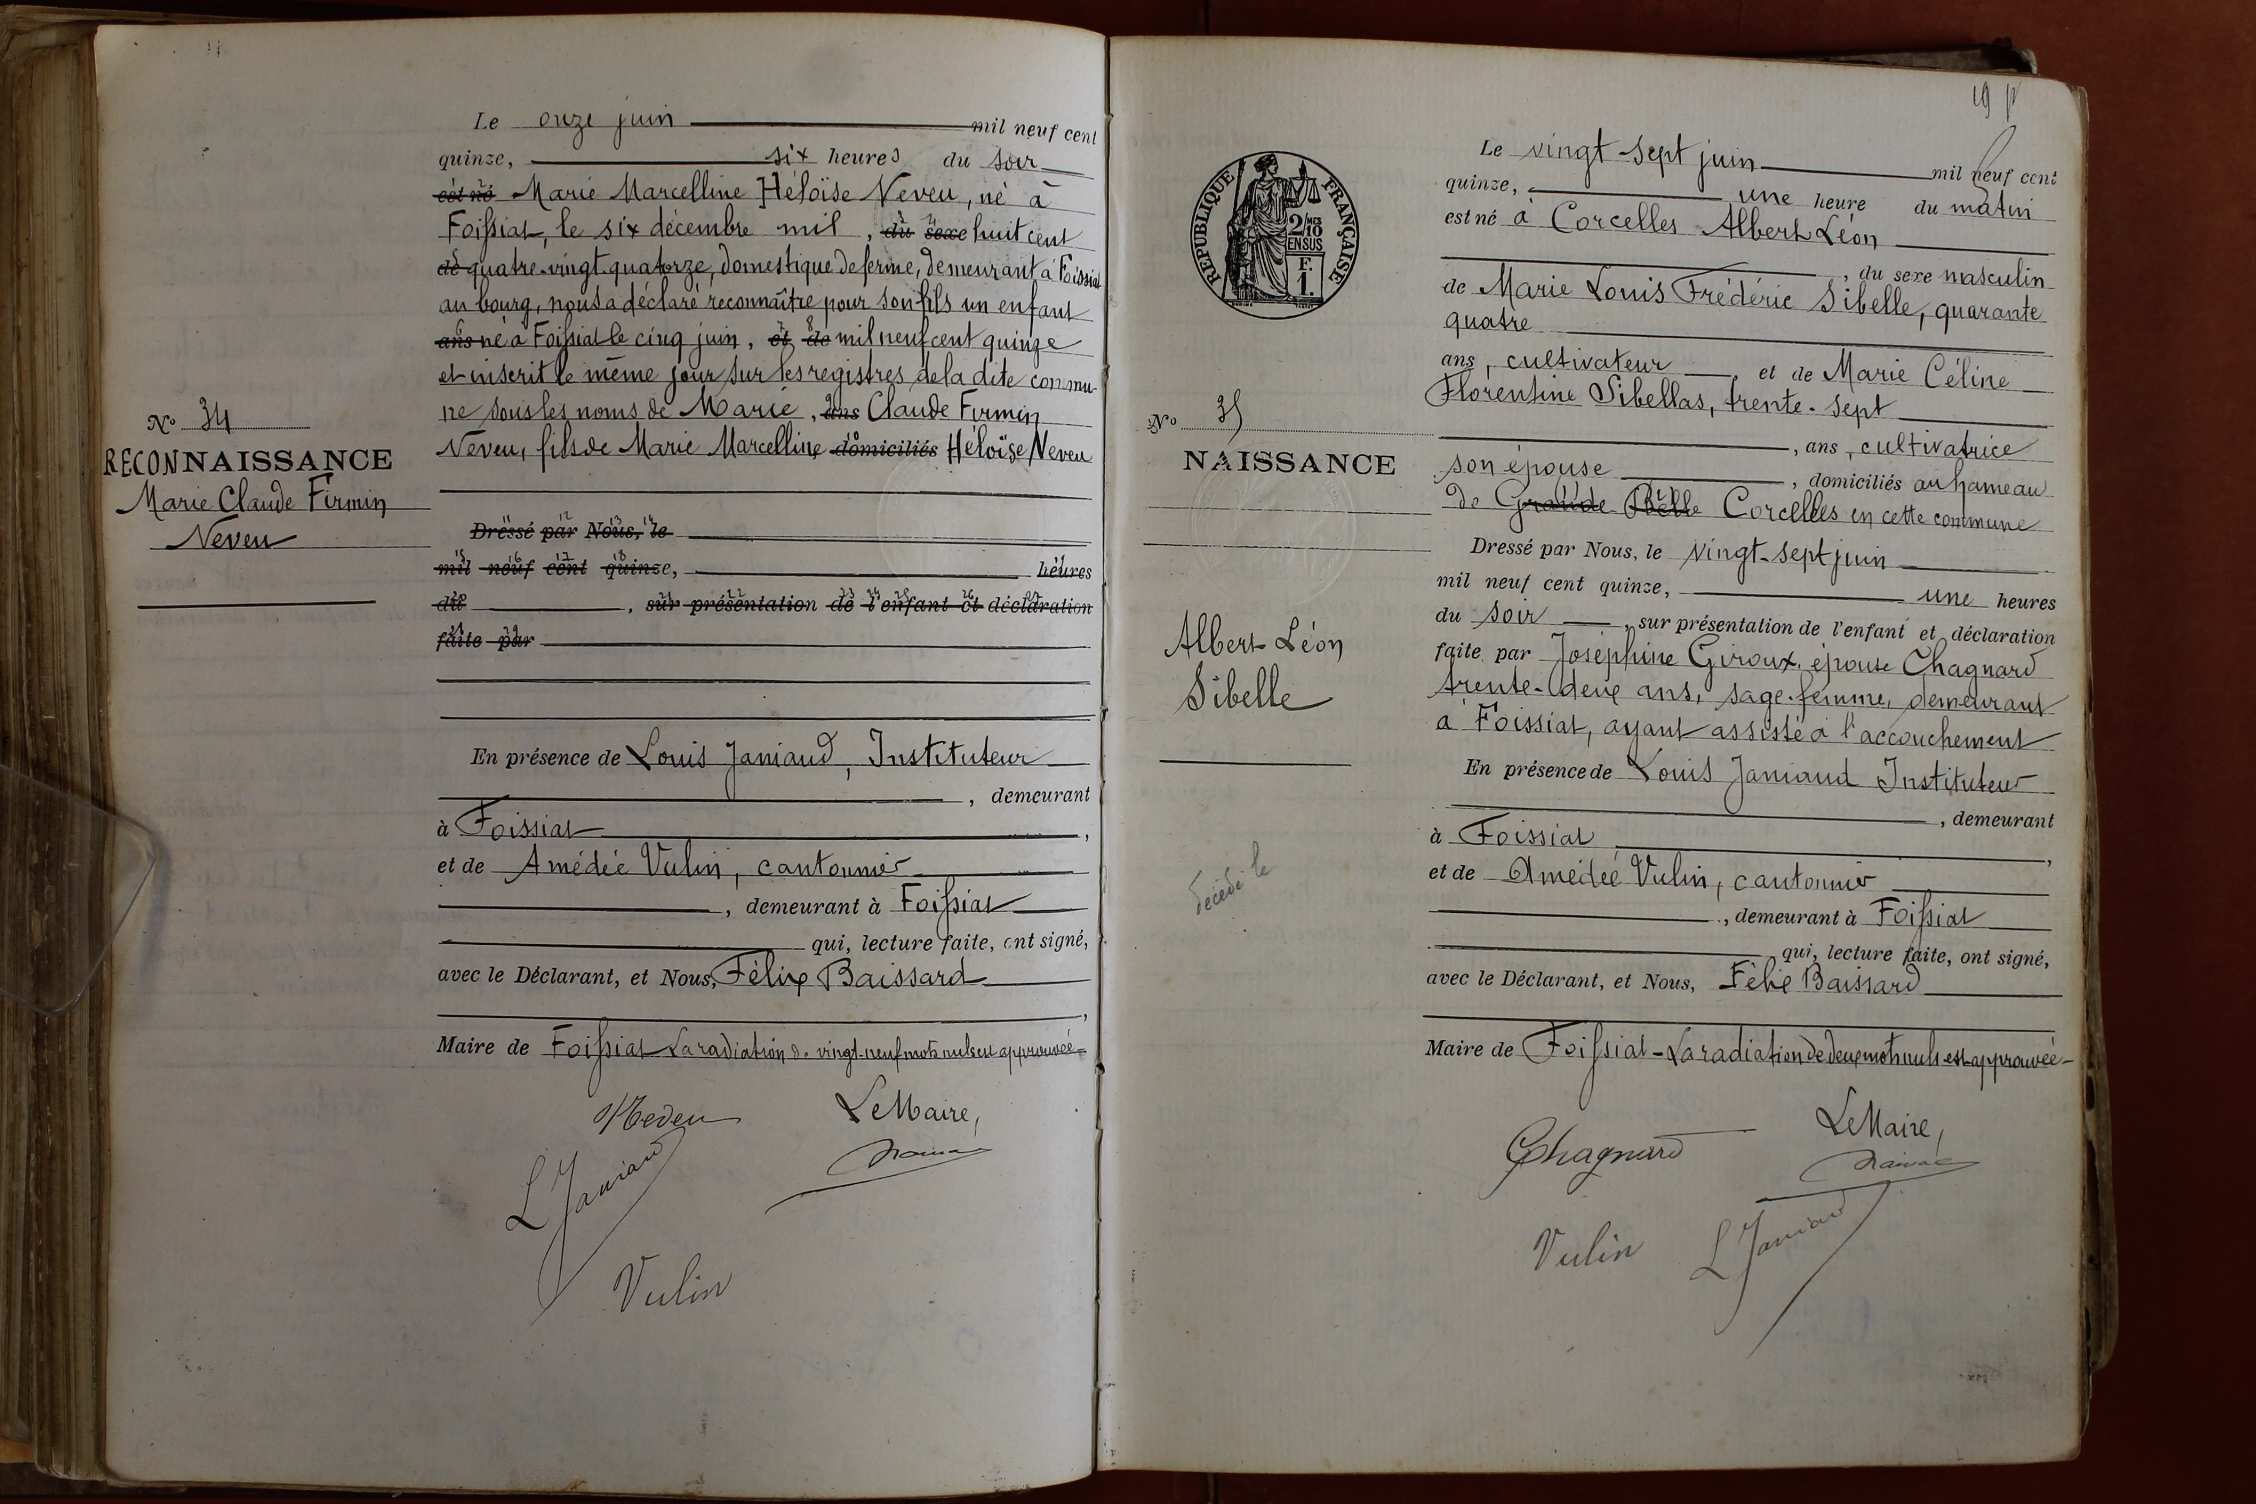 Le onze juin mil neuf cent
quinze, six heures du soir
est né Marie Marcelline Héloïse Neveu, né à
Foissiat, le six décembre mil, du sexe huit cent
de quatre-vingt-quatorze, domestique de ferme, demeurant à Foissiat
au bourg, nous a déclaré reconnaître pour son fils un enfant
ans né à Foissiat le cinq juin, et de mil neuf cent quinze
et inscrit le même jour sur les registres de la dite commu-
ne sous les noms de Marie, ans Claude Firmin
Neveu, fils de Marie Marcelline domiciliés Héloïse Neveu
No 34
RECONNAISSANCE
Marie Claude Firmin
Neveu
Dressé par Nous, le
mil neuf cent quinze, heures
du , sur présentation de l'enfant et déclaration
faite par
En présence de Louis Janiaud, Instituteur
, demeurant
à Foissiat ,
et de Amédée Vulin, cantonnier
, demeurant à Foissiat
qui, lecture faite, ont signé,
avec le Déclarant, et Nous, Félix Baissard
,
Maire de Foissiat La radiation de vingt-neuf mots nuls est approuvée-
Neveu Le Maire,
L Janiaud
Vulin
19
Le vingt-sept juin mil neuf cent
quinze, une heure du matin
est né à Corcelles Albert Léon
, du sexe masculin
de Marie Louis Frédéric Sibelle, quarante
quatre
ans, cultivateur , et de Marie Céline
Florentine Sibellas, trente-sept
, ans, cultivatrice
son épouse , domiciliés au hameau
de Grande Belle Corcelles en cette commune
RÉPUBLIQUE FRANÇAISE
2/10 MES
EN SUS
F.
1.
No 35
NAISSANCE
Albert Léon
Sibelle
décédé le
Dressé par Nous, le vingt-sept juin
mil neuf cent quinze, une heures
du soir , sur présentation de l'enfant et déclaration
faite par Joséphine Giroux, épouse Chagnard
trente-deux ans, sage-femme, demeurant
à Foissiat, ayant assisté à l'accouchement
En présence de Louis Janiaud Instituteur
, demeurant
à Foissiat ,
et de Amédée Vulin, cantonnier
, demeurant à Foissiat
qui, lecture faite, ont signé,
avec le Déclarant, et Nous, Félix Baissard
Maire de Foissiat - La radiation de deux mots nuls est approuvée-
Chagnard Le Maire,
Vulin L Janiaud